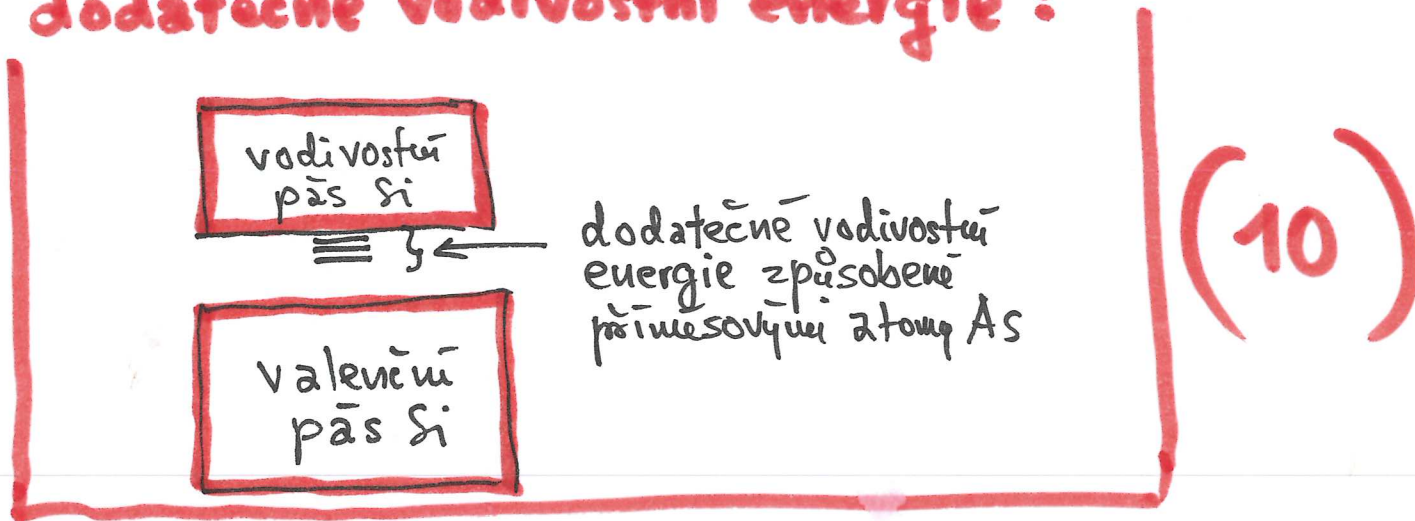 dodatečné vodivostní energie :
vodivostní
pás Si
dodatečné vodivostní
energie způsobené
příměsovými atomy As
(10)
valenční
pás Si